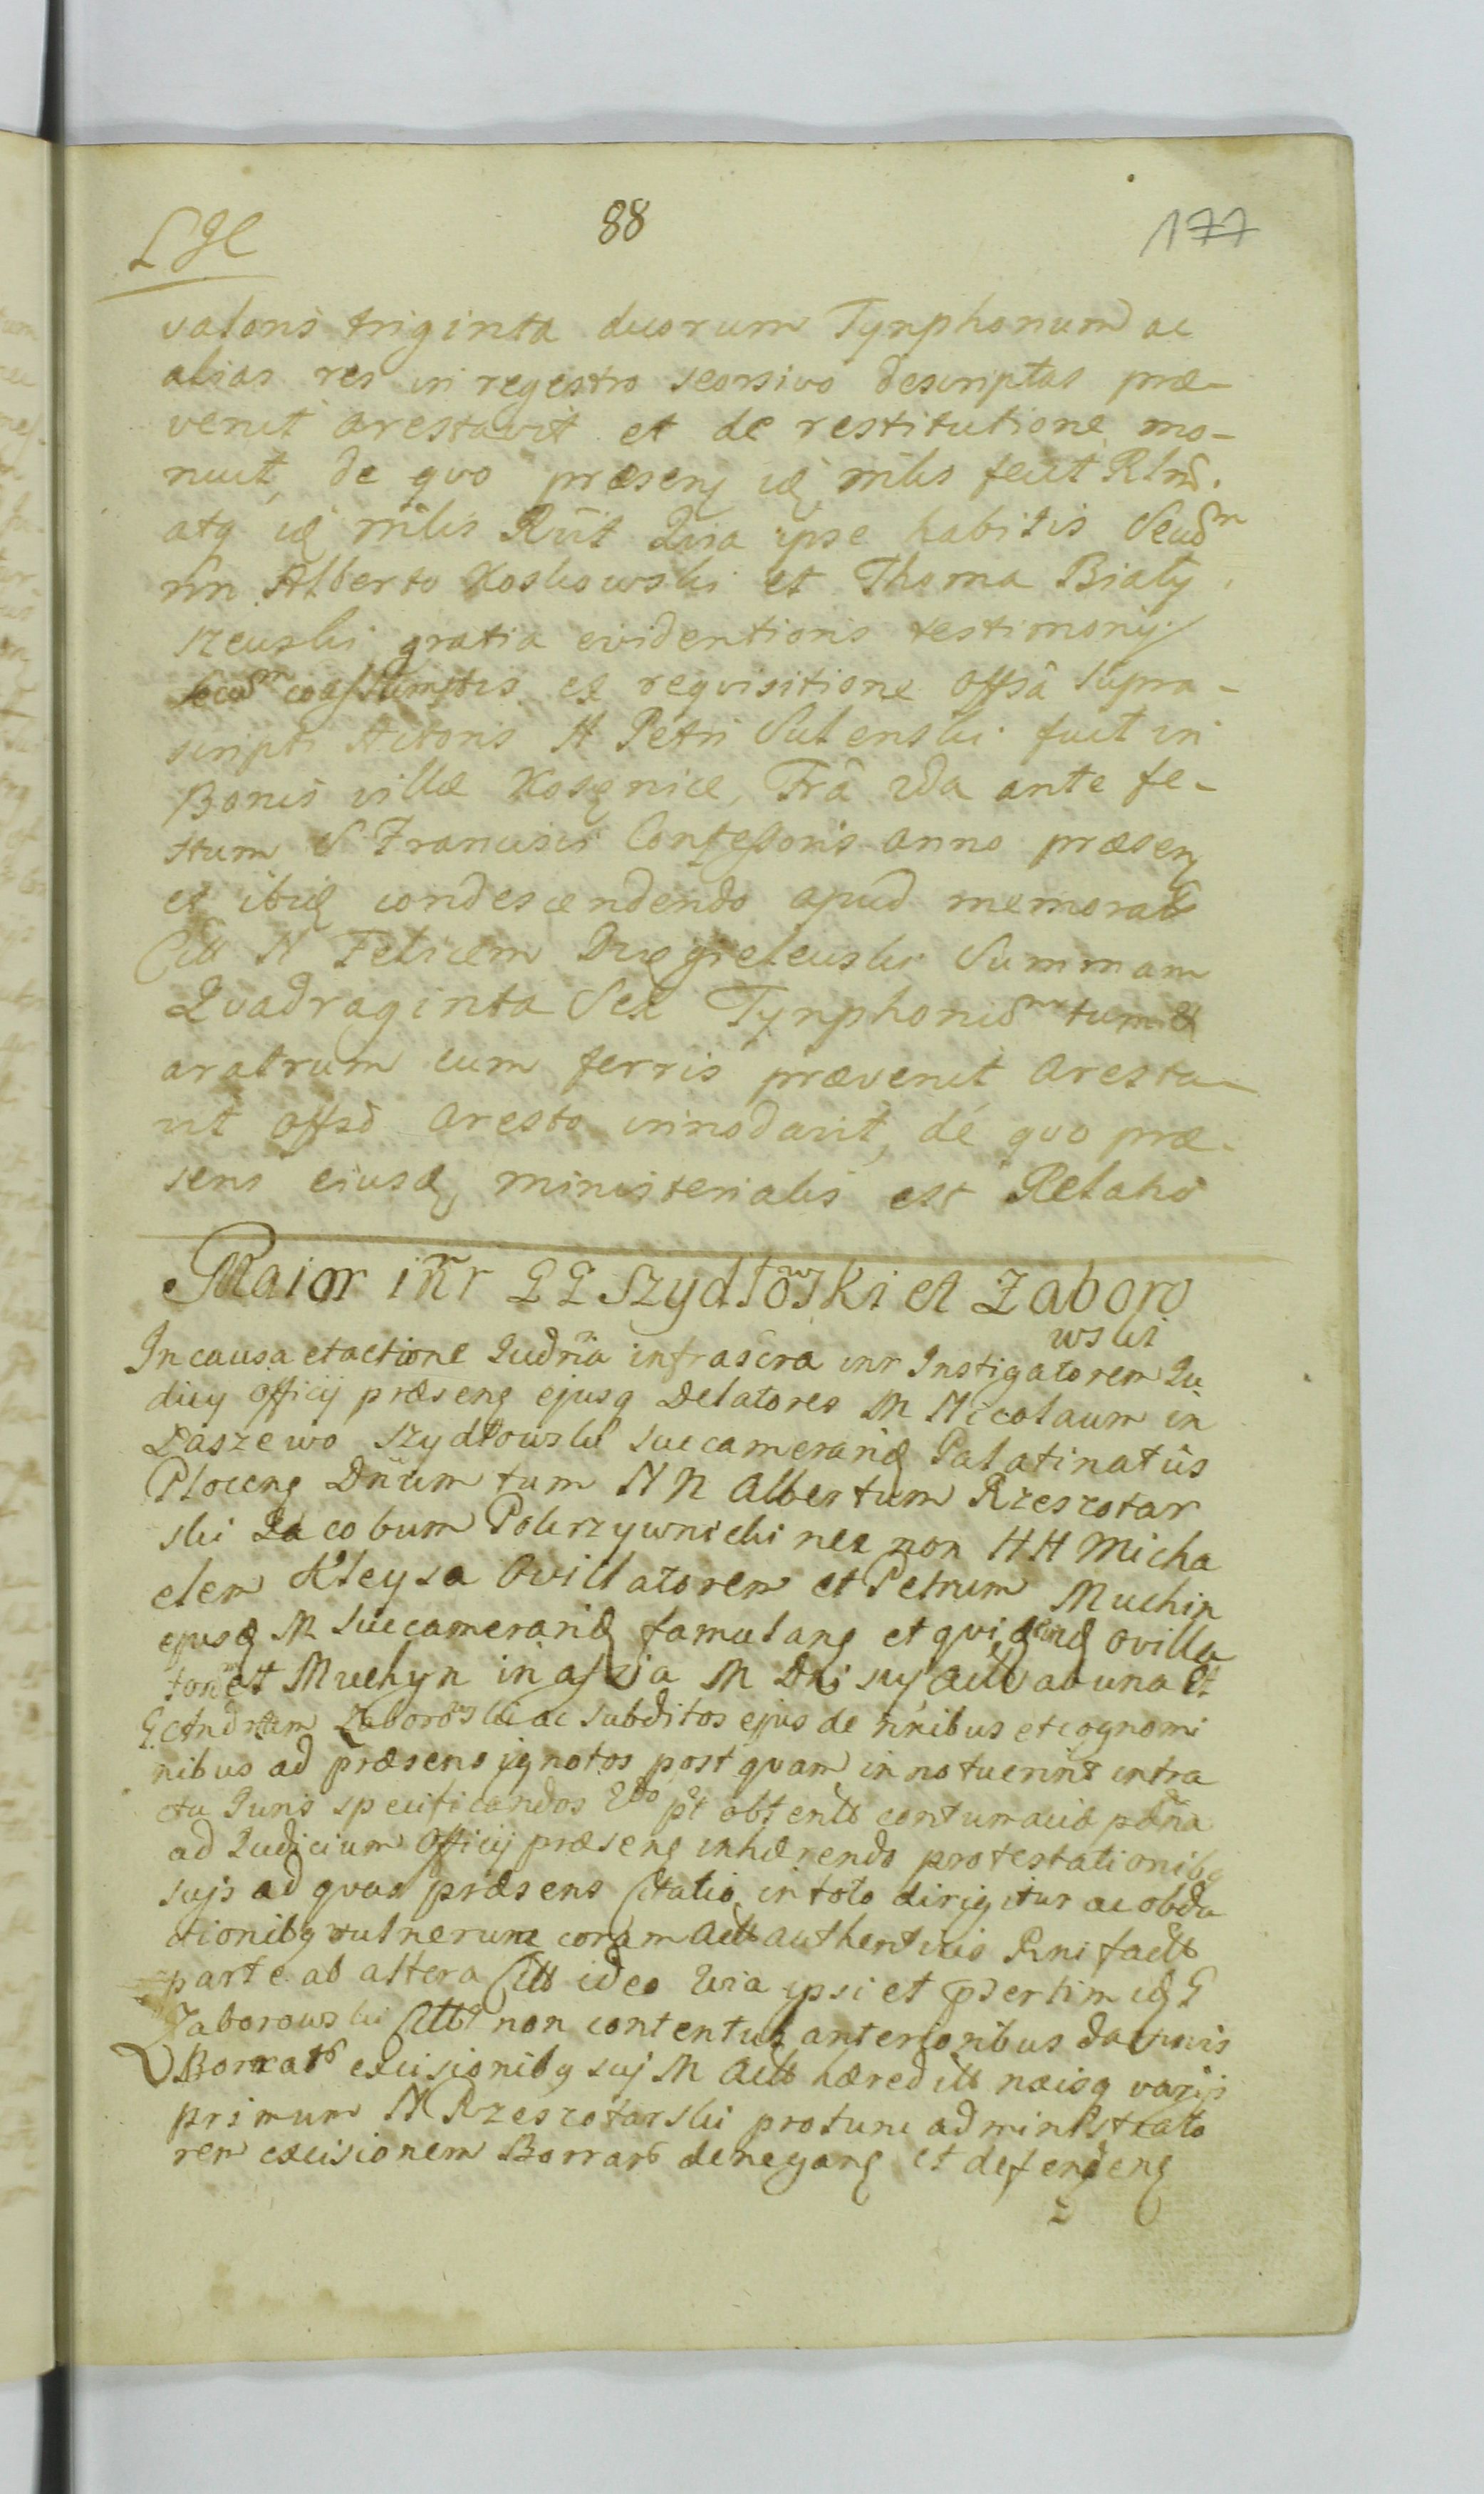 88
177
valoris triginta duorum Tynphonum ac
alias res in regestro seorsivo descriptas præ-
venit arestavit et de restitutione mo-
nuit, de quo præsens mlis fecit Rlnē.
atq mlis Rlit Quia ipse habitis Secum
Alberto Koskowski et Thoma Biały
szewski gratia evidentioris testimonij
secum coassumptis ex requisitione offsâ supra-
scripti Actoris N Petri Sulenski fuit in
Bonis villæ Kosęnice, Frâ 2da ante fe-
stum S Francisci Confessoris anno præsen
et ibiq condescendendo apud memorat
Citt N Felicem Summam
Quadraginta Sex Tynphonum tum et
aratrum cum ferris prævenit aresta-
vit offsô aresto innodavit, de quo præ-
sens eiusq ministerialis est Relatio
Maior inr GG Szydłowski et Zaboro
wski
In causa et actione Judria infrascra inr Instigatorem Ju
dicij officij præseng ejusq Delatores M Nicolaum in
Daszewo Szydłowski succamerariũ Palatinatûs
Ploceng Dnum tum NN Albertum Rzeszotar
ski Jacobum Pokrzywnicki nec non HH Micha
elem Kleysa Ovillatorem et Petrum Muchin
ejusq M succamerarij famulang et quidem ovilla
torem et Muchyn in assa M Dni suj Actt ab una et
G Andream Zaborowski ac subditos ejus de nnibus et cognomi
nibus ad præsens ignotos post quam innotuerint intra
ctu Juris specificandos 2do pt obtentt contumaciæ pœna
ad Judicium Officij præseng inhærendo protestationibq
sujs ad quas præsens Citatio in toto dirigitur ac obda
ctionibq vulnerum coram Actt authenticis Rni factt
parte ab altera Citt ideo Quia ipsi et psertim idq G
Zaborowski Citt non contentus anterioribus damnis
Borrarũ excisionibq suj M Actt hæreditt næisq varijs
primum N Rzeszotarski protunc administrato
rem excisionem Borrarũ denegang et defendeng